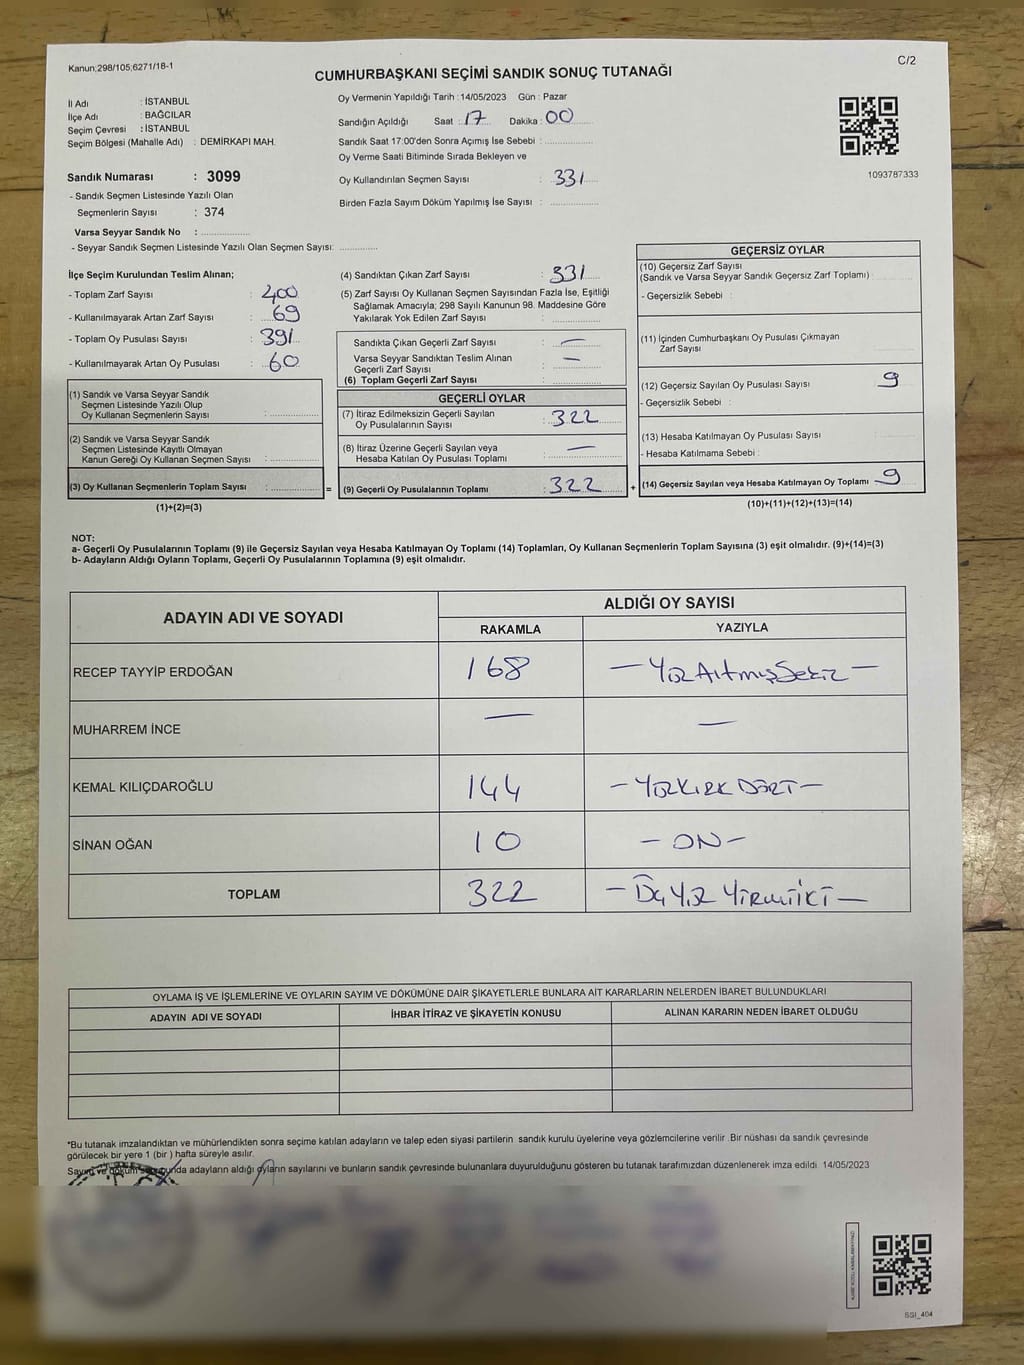 Kanun:298/105;6271/18-1
C/2
CUMHURBAŞKANI SEÇİMİ SANDIK SONUÇ TUTANAĞI
İl Adı : İSTANBUL
İlçe Adı : BAĞCILAR
Seçim Çevresi : İSTANBUL
Seçim Bölgesi (Mahalle Adı) : DEMİRKAPI MAH.
Sandık Numarası : 3099
- Sandık Seçmen Listesinde Yazılı Olan
Seçmenlerin Sayısı : 374
Varsa Seyyar Sandık No :
- Seyyar Sandık Seçmen Listesinde Yazılı Olan Seçmen Sayısı:
Oy Vermenin Yapıldığı Tarih : 14/05/2023 Gün : Pazar
Sandığın Açıldığı Saat : 17 Dakika : 00
Sandık Saat 17:00'den Sonra Açımış İse Sebebi :
Oy Verme Saati Bitiminde Sırada Bekleyen ve
Oy Kullandırılan Seçmen Sayısı : 331
Birden Fazla Sayım Döküm Yapılmış İse Sayısı :
1093787333
İlçe Seçim Kurulundan Teslim Alınan;
- Toplam Zarf Sayısı : 400
- Kullanılmayarak Artan Zarf Sayısı : 69
- Toplam Oy Pusulası Sayısı : 391
- Kullanılmayarak Artan Oy Pusulası : 60
(1) Sandık ve Varsa Seyyar Sandık
Seçmen Listesinde Yazılı Olup
Oy Kullanan Seçmenlerin Sayısı :
(2) Sandık ve Varsa Seyyar Sandık
Seçmen Listesinde Kayıtlı Olmayan
Kanun Gereği Oy Kullanan Seçmen Sayısı :
(3) Oy Kullanan Seçmenlerin Toplam Sayısı : =
(1)+(2)=(3)
(4) Sandıktan Çıkan Zarf Sayısı : 331
(5) Zarf Sayısı Oy Kullanan Seçmen Sayısından Fazla İse, Eşitliği
Sağlamak Amacıyla; 298 Sayılı Kanunun 98. Maddesine Göre
Yakılarak Yok Edilen Zarf Sayısı :
Sandıkta Çıkan Geçerli Zarf Sayısı : —
Varsa Seyyar Sandıktan Teslim Alınan
Geçerli Zarf Sayısı : —
(6) Toplam Geçerli Zarf Sayısı :
GEÇERLİ OYLAR
(7) İtiraz Edilmeksizin Geçerli Sayılan
Oy Pusulalarının Sayısı : 322
(8) İtiraz Üzerine Geçerli Sayılan veya
Hesaba Katılan Oy Pusulası Toplamı : —
(9) Geçerli Oy Pusulalarının Toplamı : 322 +
GEÇERSİZ OYLAR
(10) Geçersiz Zarf Sayısı
(Sandık ve Varsa Seyyar Sandık Geçersiz Zarf Toplamı) :
- Geçersizlik Sebebi :
(11) İçinden Cumhurbaşkanı Oy Pusulası Çıkmayan
Zarf Sayısı
(12) Geçersiz Sayılan Oy Pusulası Sayısı : 9
- Geçersizlik Sebebi :
(13) Hesaba Katılmayan Oy Pusulası Sayısı
- Hesaba Katılmama Sebebi :
(14) Geçersiz Sayılan veya Hesaba Katılmayan Oy Toplamı : 9
(10)+(11)+(12)+(13)=(14)
NOT:
a- Geçerli Oy Pusulalarının Toplamı (9) ile Geçersiz Sayılan veya Hesaba Katılmayan Oy Toplamı (14) Toplamları, Oy Kullanan Seçmenlerin Toplam Sayısına (3) eşit olmalıdır. (9)+(14)=(3)
b- Adayların Aldığı Oyların Toplamı, Geçerli Oy Pusulalarının Toplamına (9) eşit olmalıdır.
ADAYIN ADI VE SOYADI ALDIĞI OY SAYISI
RAKAMLA YAZIYLA
RECEP TAYYİP ERDOĞAN 168 — YüzAltmışSekiz —
MUHARREM İNCE — —
KEMAL KILIÇDAROĞLU 144 — YÜZKIRK DÖRT —
SİNAN OĞAN 10 — ON —
TOPLAM 322 — ÜçYüz YİRMİİKİ —
OYLAMA İŞ VE İŞLEMLERİNE VE OYLARIN SAYIM VE DÖKÜMÜNE DAİR ŞİKAYETLERLE BUNLARA AİT KARARLARIN NELERDEN İBARET BULUNDUKLARI
ADAYIN ADI VE SOYADI İHBAR İTİRAZ VE ŞİKAYETİN KONUSU ALINAN KARARIN NEDEN İBARET OLDUĞU
*Bu tutanak imzalandıktan ve mühürlendikten sonra seçime katılan adayların ve talep eden siyasi partilerin sandık kurulu üyelerine veya gözlemcilerine verilir .Bir nüshası da sandık çevresinde
görülecek bir yere 1 (bir ) hafta süreyle asılır.
Sayım ve döküm sonucunda adayların aldığı oyların sayılarını ve bunların sandık çevresinde bulunanlara duyurulduğunu gösteren bu tutanak tarafımızdan düzenlenerek imza edildi. 14/05/2023
SSI_404